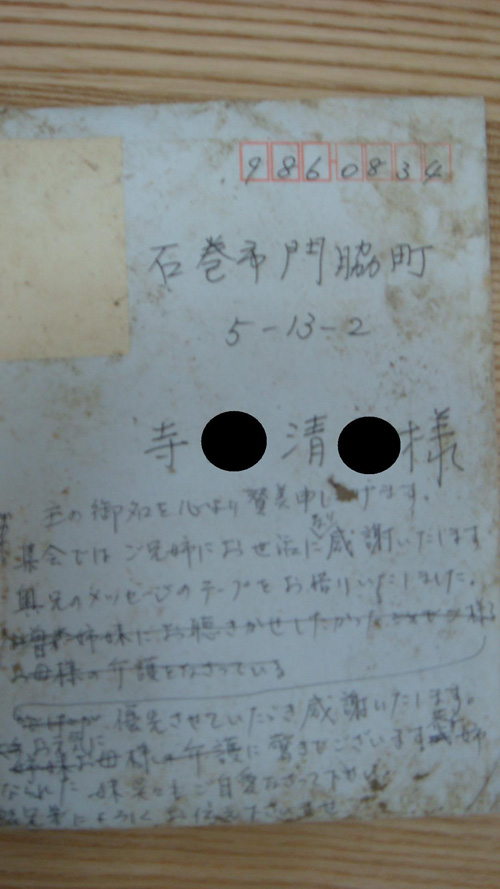 986-0834
石巻市門脇町
5-13-2
寺 清 様
主の御名を心より賛美申し げます。
集会ではご兄姉にお世話になり感謝いたします
兄のメッセージのテープをお借りいたしました。
姉妹にお聴きかせしたかった
お母様の弁護をなさっている
優先させていただき感謝いたします。
お母様の弁護に驚き ございます
なられた 姉 ご自愛なさって下さい
兄 によろしくお伝え下さいませ